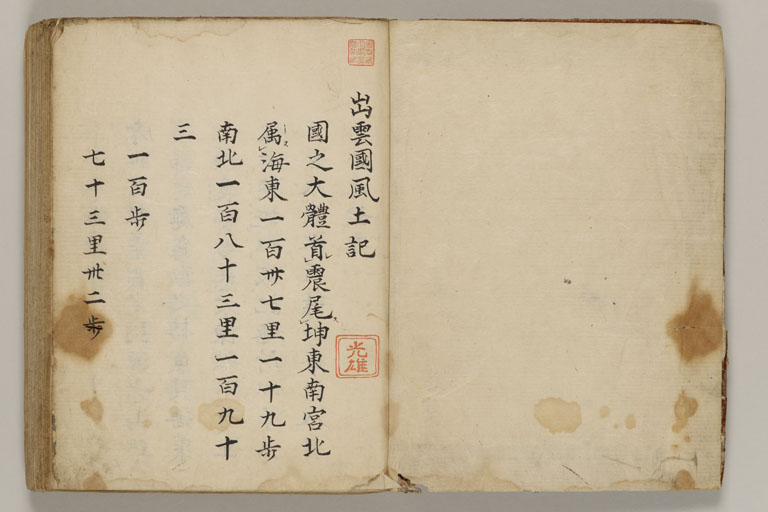 出雲國風土記
國之大體首震尾坤東南宮北
属海東一百卅七里一十九歩
南北一百八十三里一百九十
三
一百歩
七十三里卅二歩
光雄